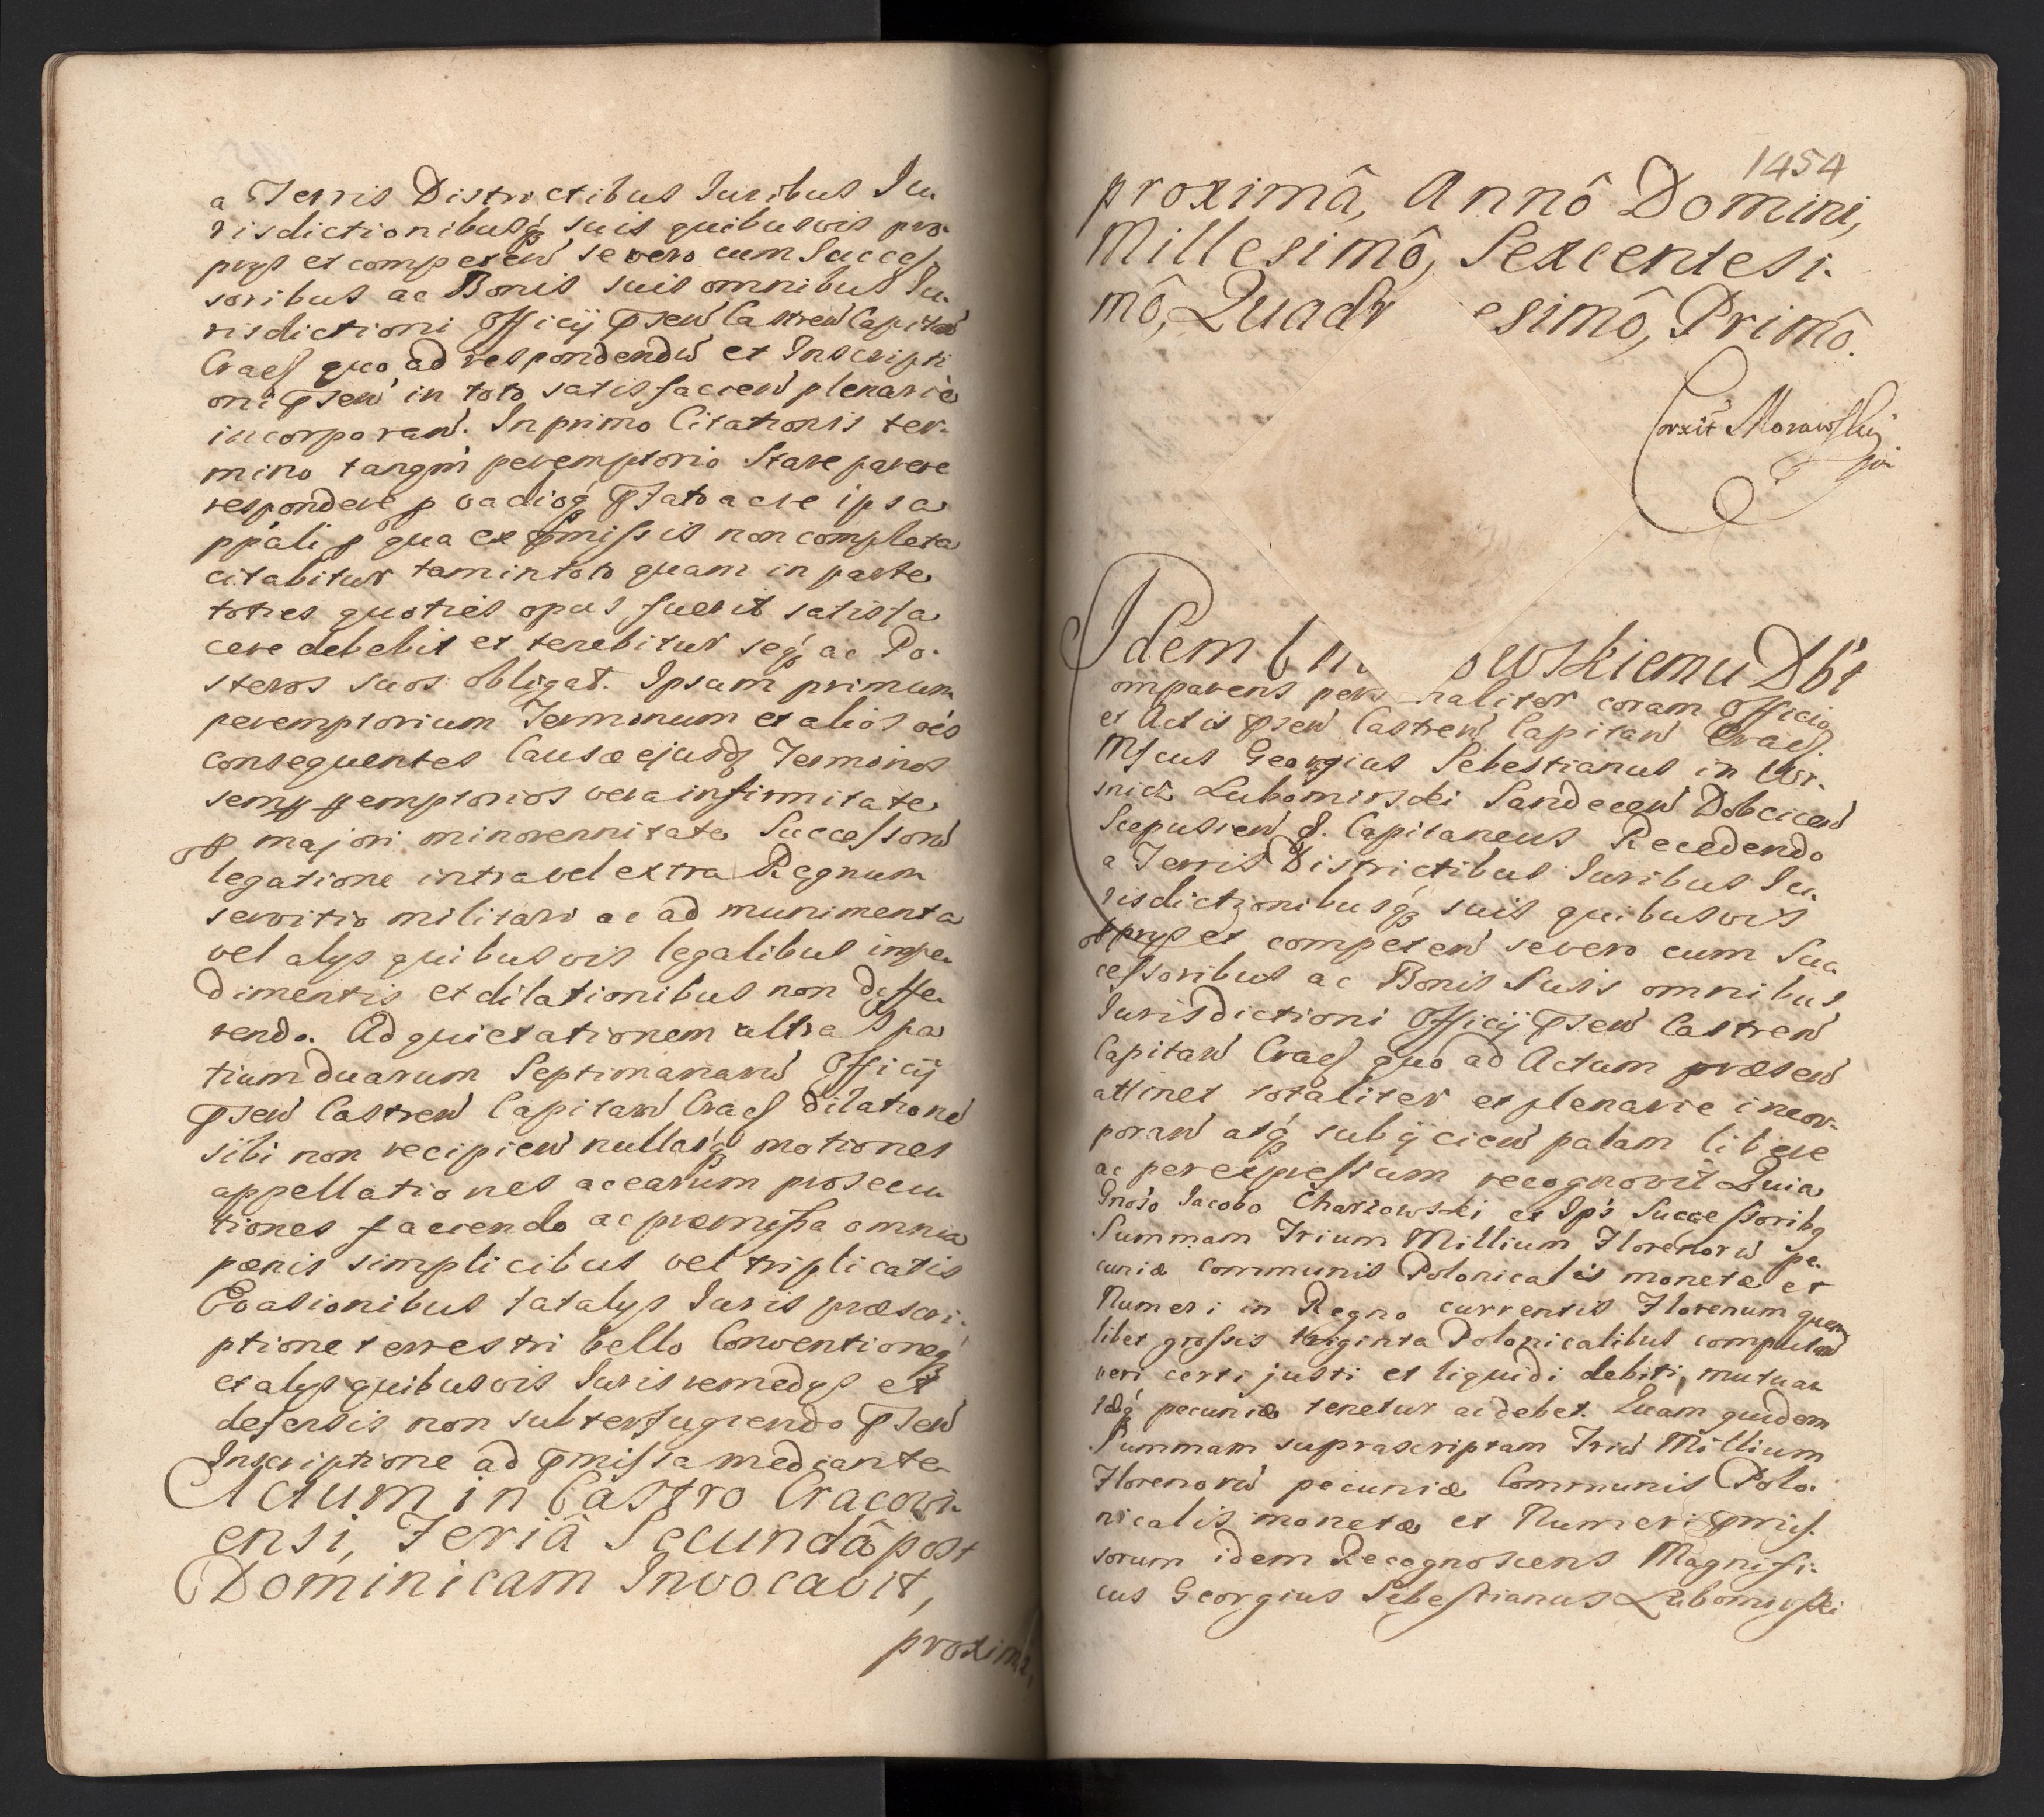 a Terris Districtibus Iuribus Iu-
risdictionibusq₃ suis quibusvis pro-
prys et competen̄ se vero cum Succes-
soribus ac Bonis suis omnibus Iu-
risdictioni Officij p̄sen̄ Castren̄ Capitan̄
Cracꝭ quo ad respondendū et Inscripti
oni p̄sen̄ in toto satisfacien̄ plenarie
incorporan̄. In primo Citationis ter-
mino tanqm̄ peremptorio Stare parere
respondere
ꝑpali ꝑ qua ex p̄missis non completa
citabitur tam in toto quam in parte
toties quoties opus fuerit satisfa
cere debebit et tenebitur seq₃ ac Po-
steros suos obligat. Ipsum primum
peremptorium Terminum et alios oēs
consequentes Causæ ejusd₃ Terminos
semꝑ ꝑemptorios vera infirmitate
majori minorennitate Successorū
legatione intra vel extra Regnum
servitio militari ac ad munimenta
vel alys quibusvis legalibus impe-
dimentis et dilationibus non diffe-
rendo. Ad quietationem ultra Spa
tium duarum Septimanarū Officij
p̄sen̄ Castren̄ Capitan̄ Cracꝭ dilationē
sibi non recipien̄ nullasq₃ motiones
appellationes ac earum prosecu
tiones faciendo ac præmissa omnia
pœnis simplicibus vel triplicatis
Evasionibus fatalys Iuris præscri-
ptione terrestri bello Conventioneq₃
et alys quibusvis Iuris remedys et
defensis non subterfugiendo p̄sen̄
Inscriptione ad p̄missa mediante
Actum in Castro Cracovi-
ensi, Feriâ Secundâ post
Dominicam Invocavit,
proxima,
1454
proximâ, Annô Domini,
Millesimô, Sexcentesi-
mô, Quadr esimô, Primô.
Corxit Morawski
Idem owskiemu Dbt
omparens pers naliter coram Officio
et Actis p̄sen̄ Castren̄ Capitan̄ Cracꝭ.
Mfcus Georgius Sebestianus in Wis-
nicz Lubomirski Sandecen̄ Dobcicen̄
Scepusien̄ &. Capitaneus Recedendo
a Terris Districtibus Iuribus Iu-
risdictionibusq₃ suis quibusvis
prys et competen̄ se vero cum Suc-
cessoribus ac Bonis Suis omnibus
Iurisdictioni Officij p̄sen̄ Castren̄
Capitan̄ Cracꝭ quo ad Actum præsen̄
attinet totaliter et plenarie incor-
poran̄ atq₃ subijcien̄ palam libere
ac per expressum recognovit Quia
Gnōso Iacobo Charzowski et Ip̄s Successoribq
Summam Trium Millium Florenorū pe-
cuniæ Communis Polonicalis monetæ et
Numeri in Regno currentis Florenum quem-
libet grossis triginta Polonicalibus computan̄
veri certi justi et liquidi debiti, mutuat
tæq₃ pecuniæ tenetur ac debet. Quam quidem
Summam suprascriptam Triū Millium
Florenorū pecuniæ Communis Polo-
nicalis monetæ et Numeri p̄mis-
sorum idem Recognoscens Magnifi-
cus Georgius Sebestianus Lubomirski